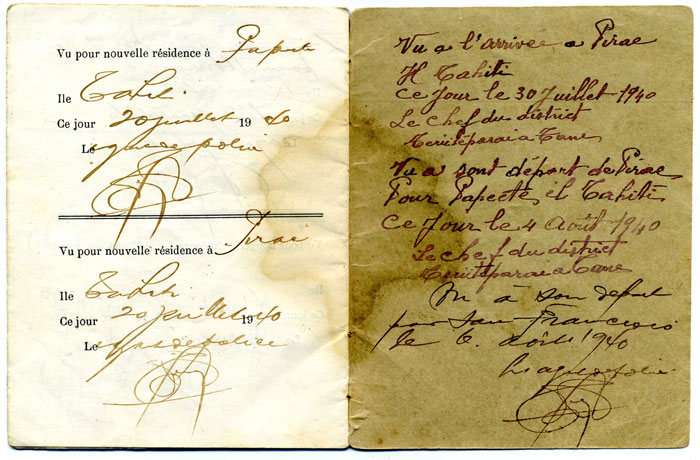 Vu pour nouvelle résidence à Papeete
Ile Tahiti
Ce jour 20 juillet 1940
Le
Vu pour nouvelle résidence à Pirae
Ile Tahiti
Ce jour 20 juillet 1940
Le
Vu a l'arrivée a Pirae
Il Tahiti
Ce Jour le 30 Juillet 1940
Le chef du district
Teriitéparai a Tane
Vu a sont départ de Pirae
Pour Papeete il Tahiti
Ce Jour le 4 Août 1940
Le chef du district
Teriitéparai a Tane
Vu à son départ
pour San Francisco
le 6 août 1940